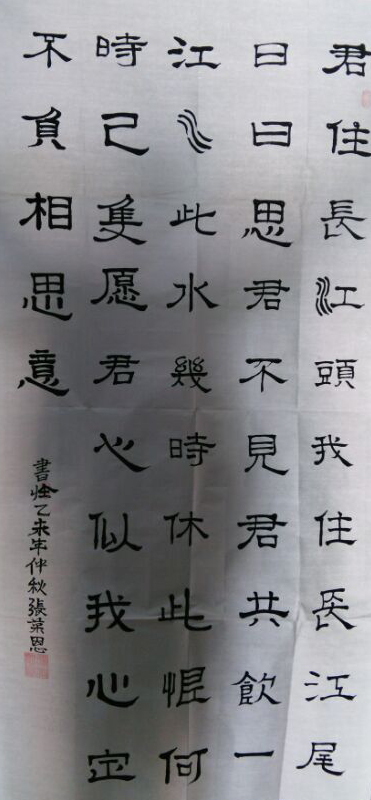 君住長江頭我住長江尾
日日思君不見君共飲一
江水此水幾時休此恨何
時已隻愿君心似我心定
不負相思意
書乙未年仲秋張恩